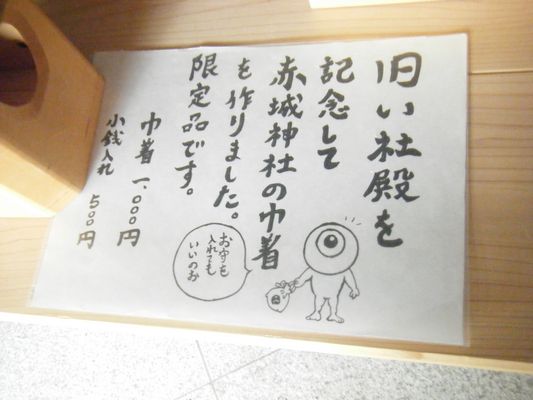 旧い社殿を
記念して
赤城神社の巾着
を作りました。
限定品です。
巾着 一、〇〇〇円
小銭入れ 五〇〇円
お守を
入れても
いいのお